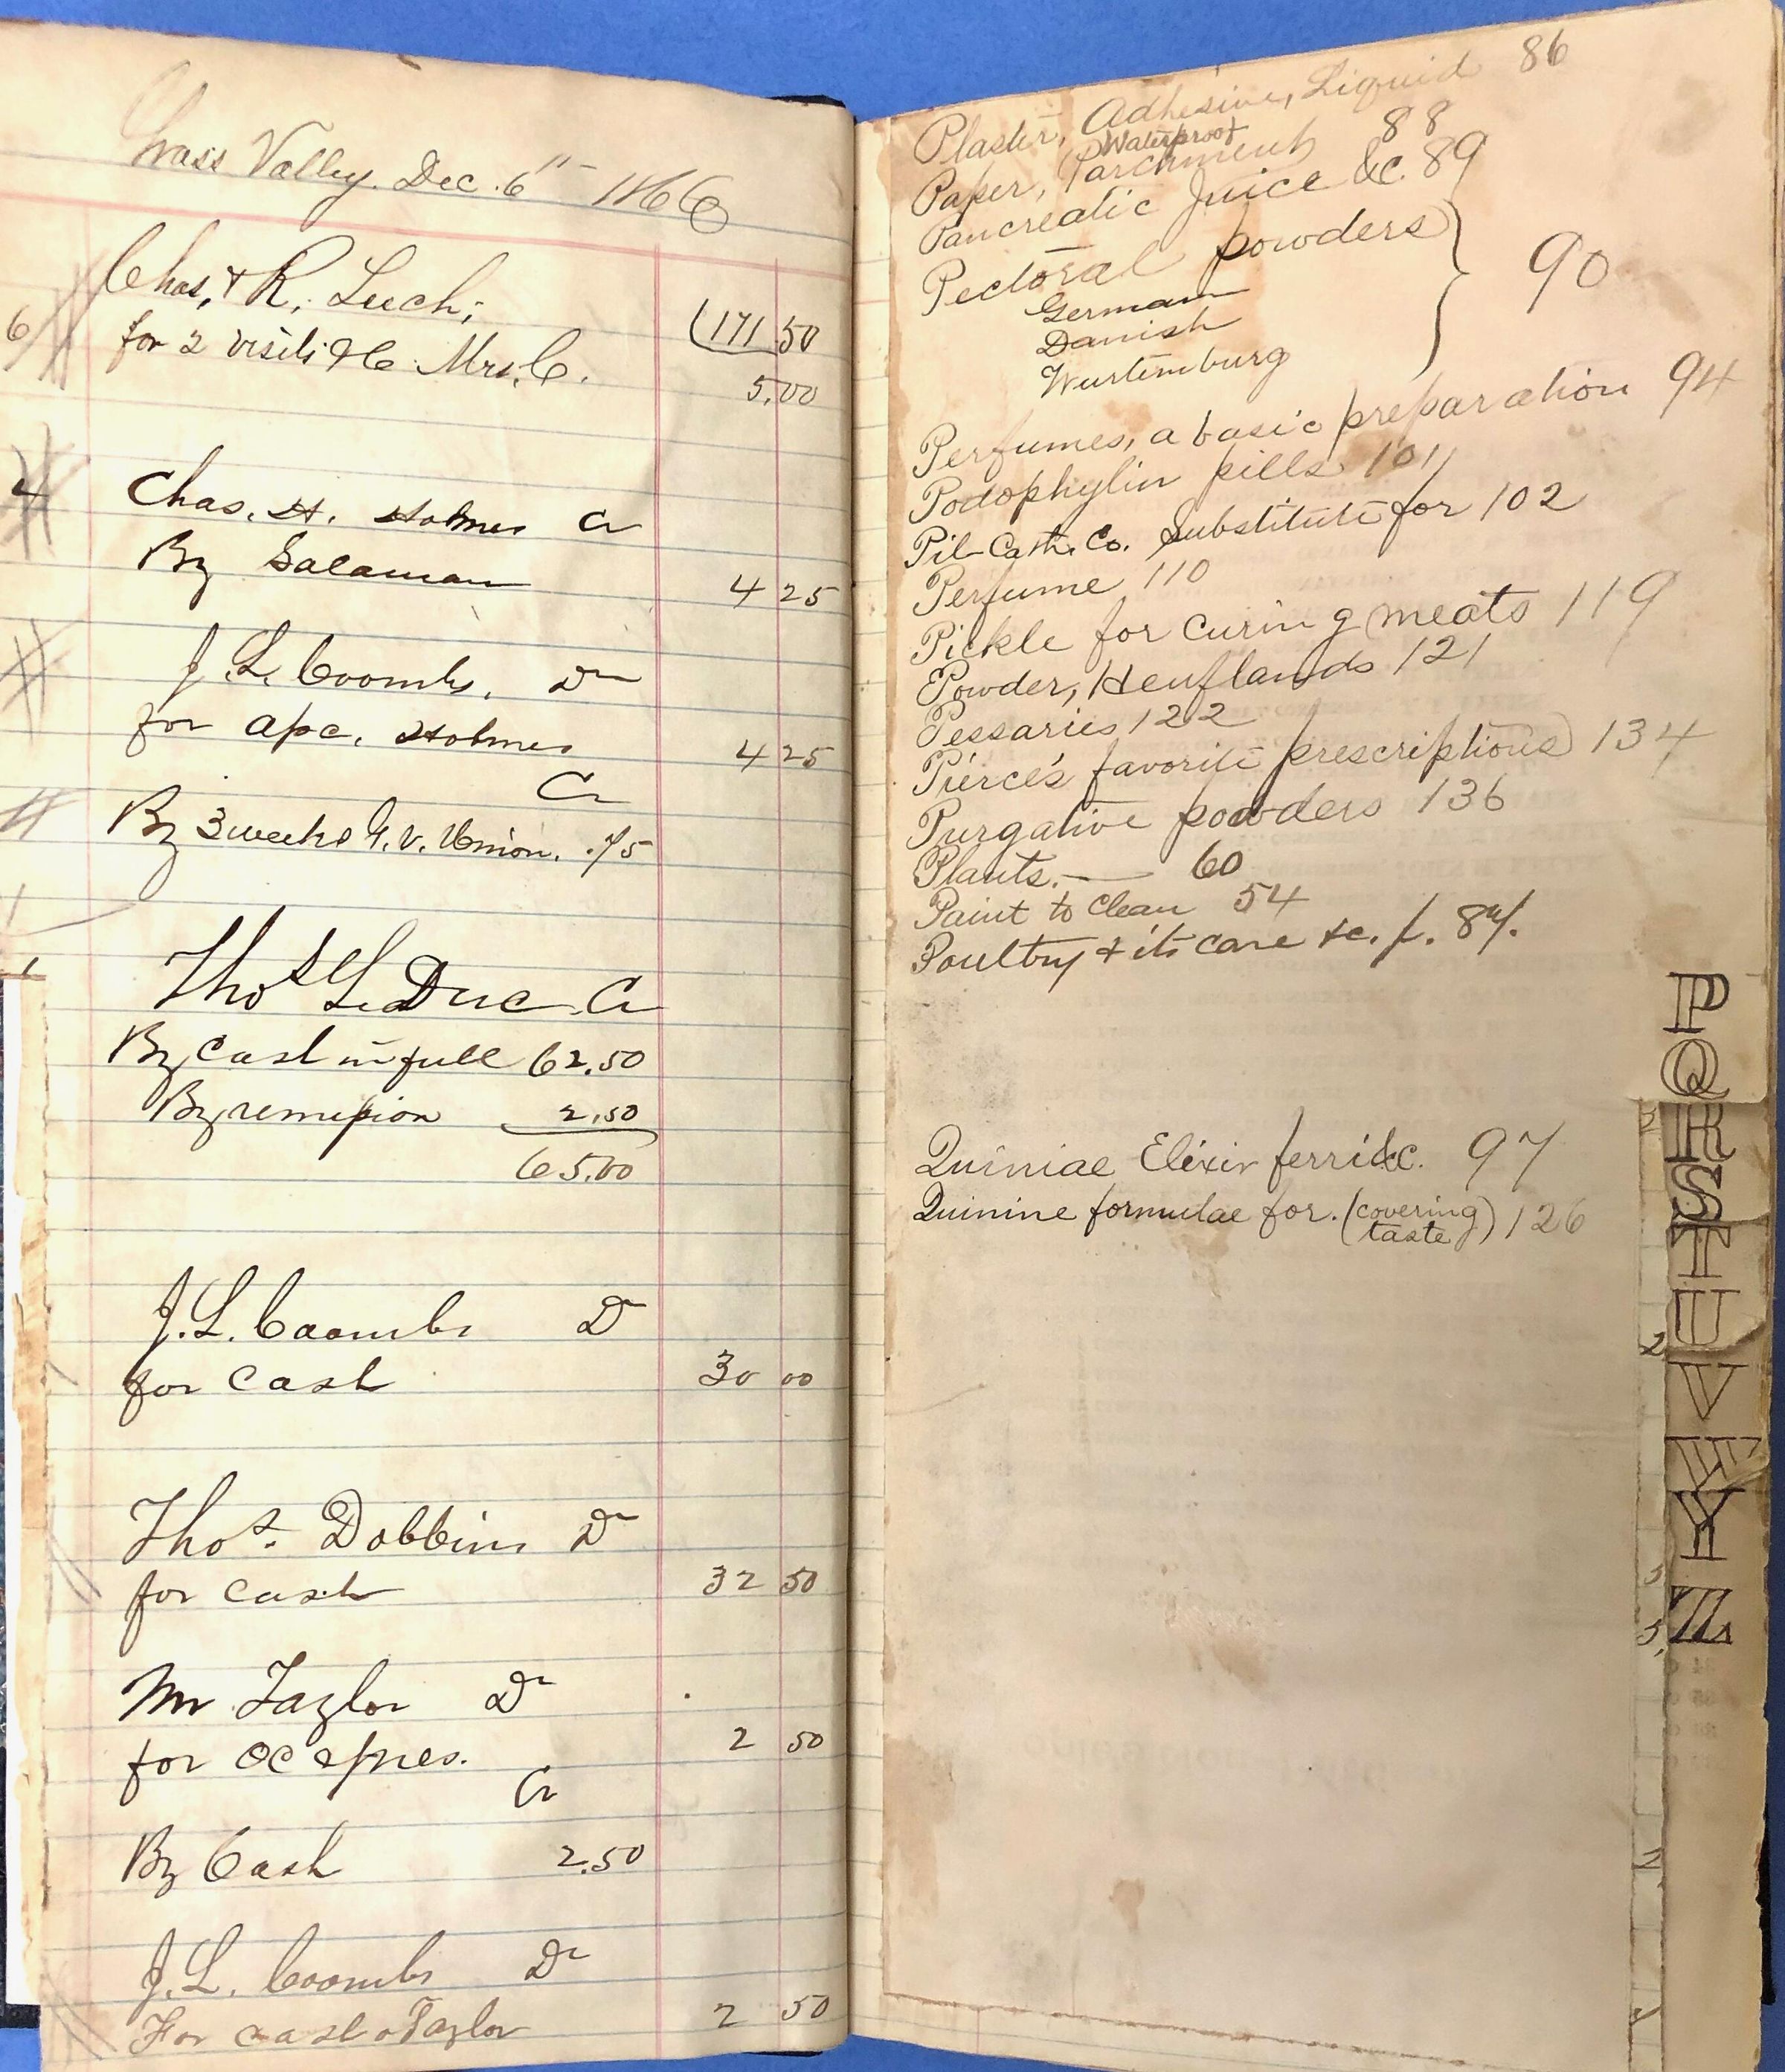 Grass Valley. Dec. 6th 1866
Chas, + R. Luch; (171 50
for 2 visits &c Mrs. C. 5.00
Chas. H. Holmes Cr
By Salaman 4 25
J. L. Coombs. Dr
for apc. Holmes 4 25
Cr
By 3 weeks G. V. Union. .75
Thos L. Duc Cr
By Cash in full 62.50
By remission 2.50
65.00
J. L. Coombs Dr
for Cash 30 00
Thos. Dobbins Dr
for Cash 32 50
Mr Taylor Dr
for OC & pres. 2 50
Cr
By Cash 2.50
J. L. Coombs Dr
For cash Taylor 2 50
Plaster, Adhesive, Liquid 86
Waterproof
Paper, Parchment 88
Pancreatic Juice &c. 89
Pectoral powders } 90
German
Danish
Wurtemburg
Perfumes, a basic preparation 94
Podophylin pills 101
Pil Cath. Co. Substitute for 102
Perfume 110
Pickle for curing meats 119
Powder, Heuflands 121
Pessaries 122
Pierce's favorite prescriptions 134
Purgative powders 136
Plants. — 60
Paint to Clean 54
Poultry & its care &c. p. 84.
Quiniae Elixir ferri &c. 97
Quinine formulae for. (covering taste) 126
P
Q
R
S
T
U
V
W
Y
Z